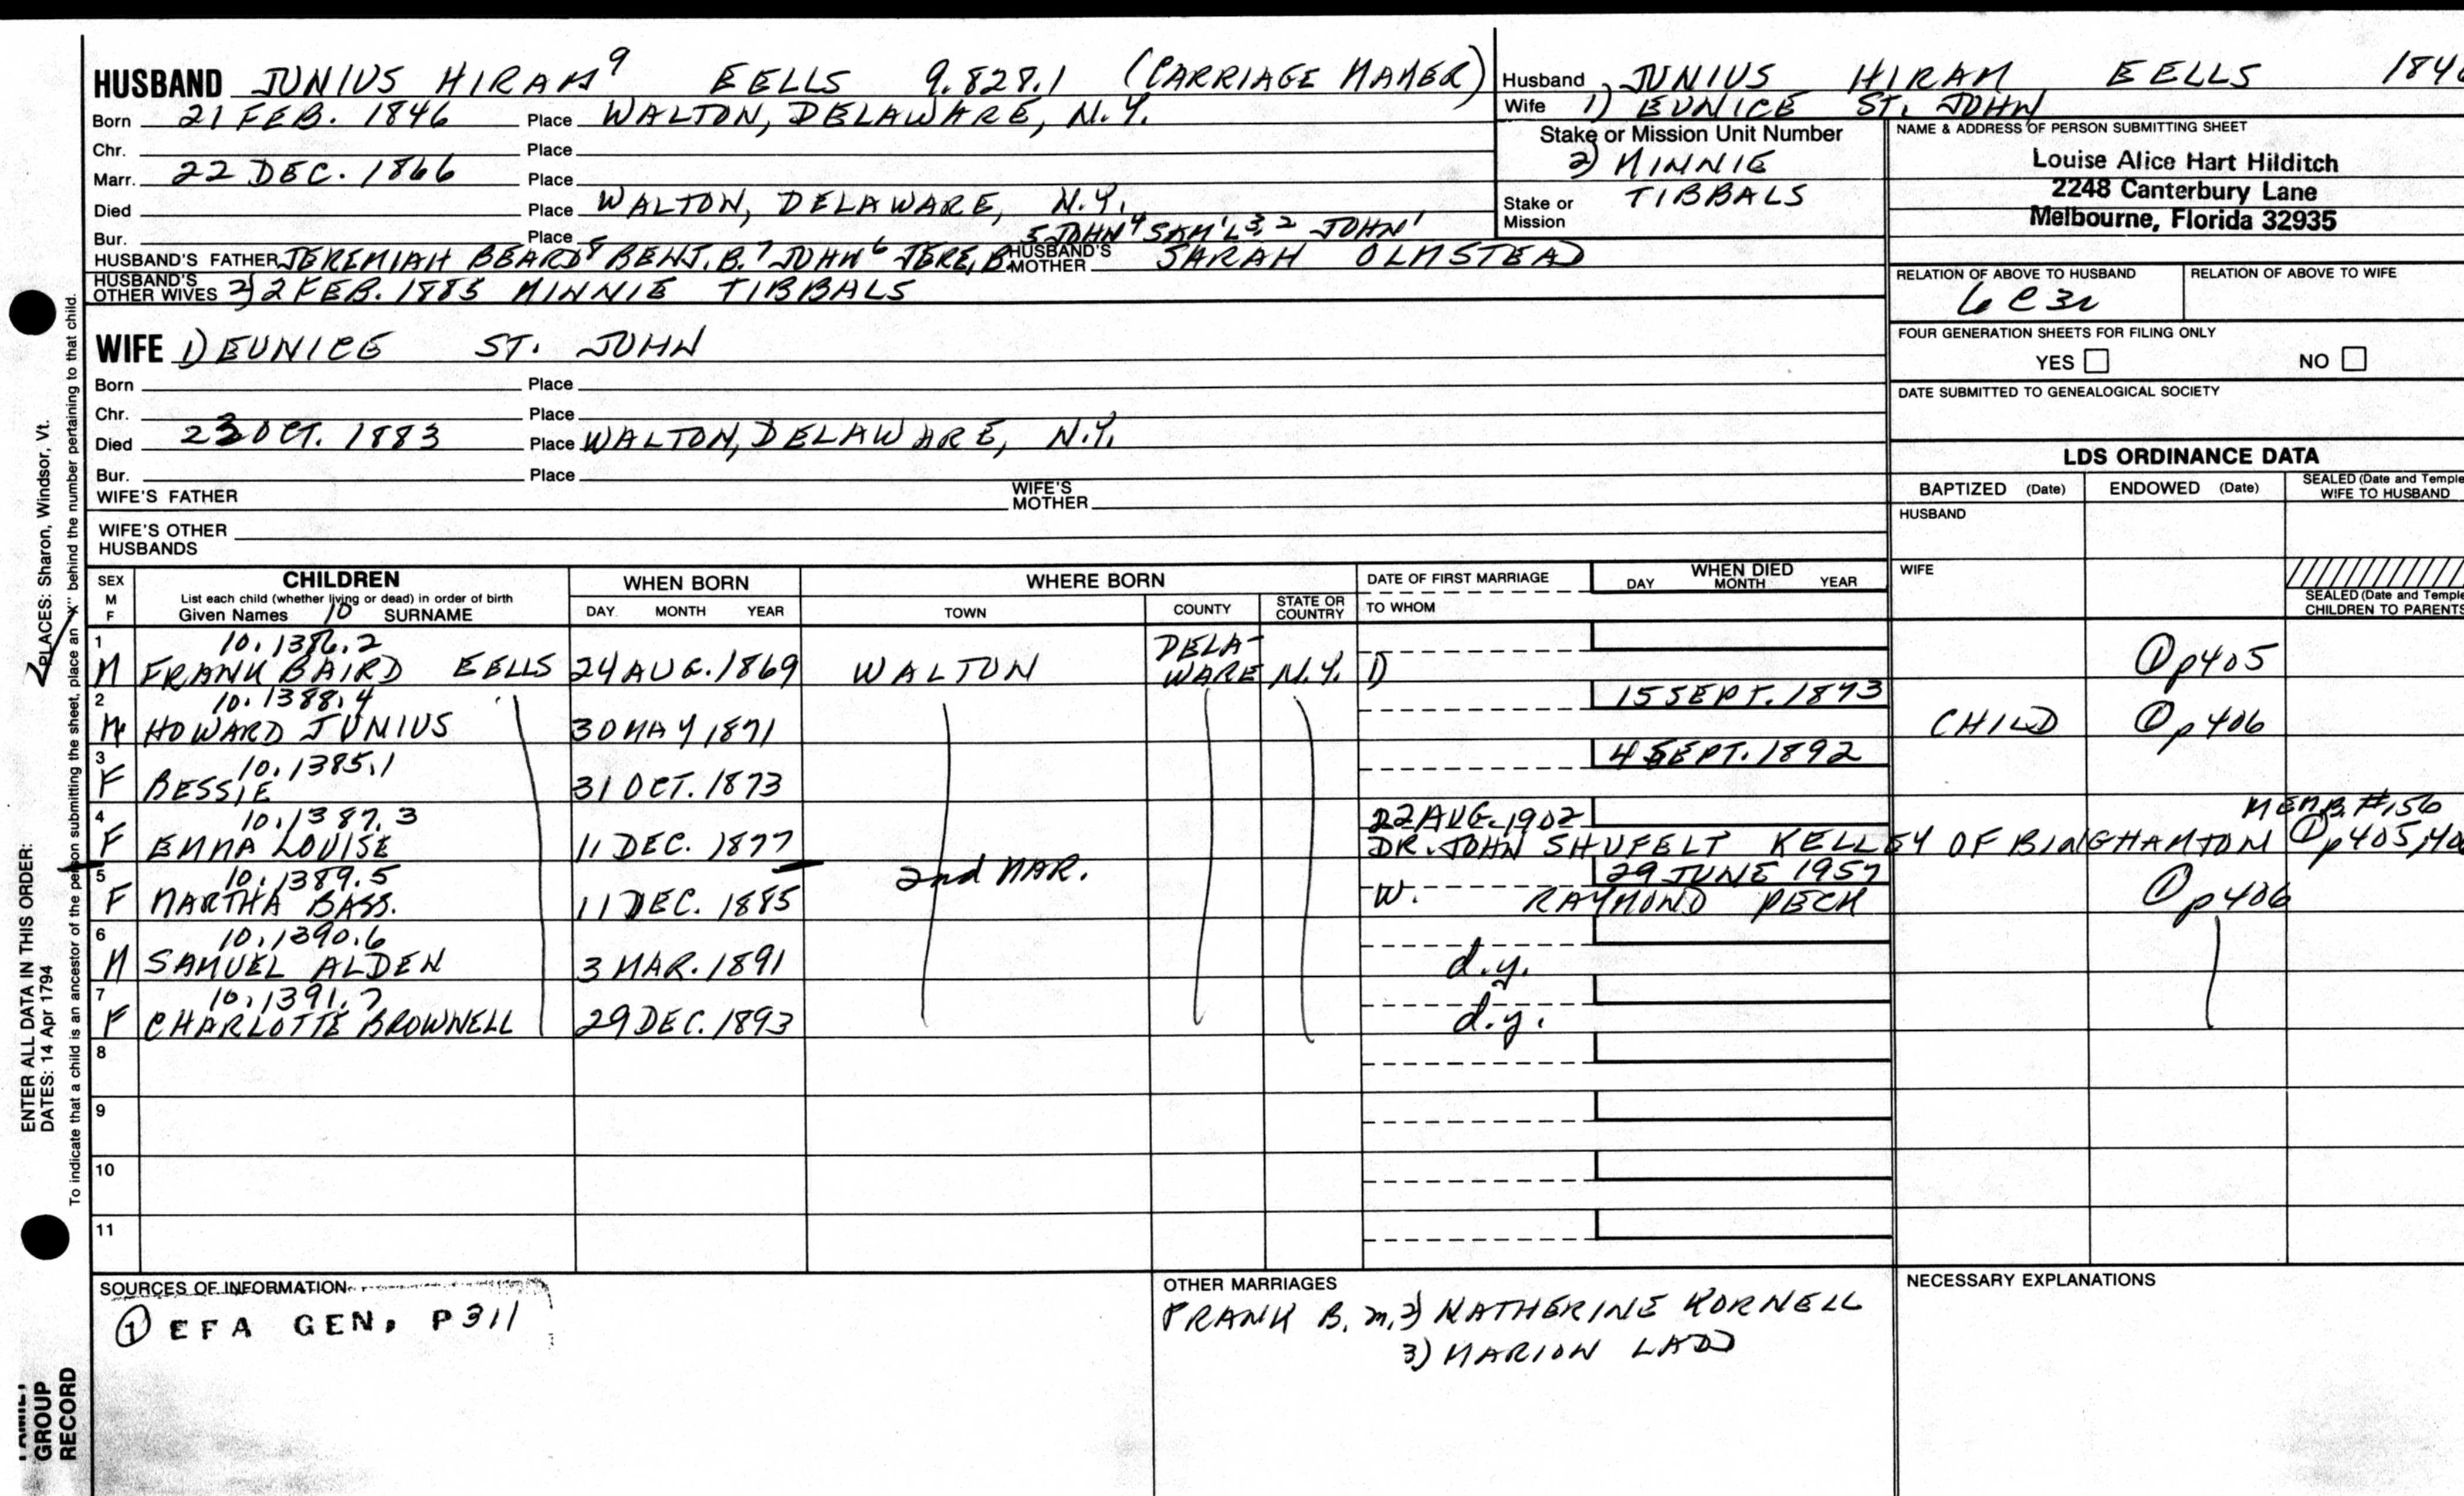 HUSBAND JUNIUS HIRAM⁹ EELLS 9.828.1 (CARRIAGE MAKER)
Born 21 FEB. 1846 Place WALTON, DELAWARE, N.Y.
Chr. Place
Marr. 22 DEC. 1866 Place
Died Place WALTON, DELAWARE, N.Y.
Bur. Place 5 JOHN⁴ SAM'L³,² JOHN¹
HUSBAND'S FATHER JEREMIAH BEARD⁸ BENJ. B.⁷ JOHN⁶ JERE. B HUSBAND'S MOTHER SARAH OLMSTEAD
HUSBAND'S OTHER WIVES 2) 2 FEB. 1885 MINNIE TIBBALS
WIFE 1) EUNICE ST. JOHN
Born Place
Chr. Place
Died 23 OCT. 1883 Place WALTON, DELAWARE, N.Y.
Bur. Place
WIFE'S FATHER WIFE'S MOTHER
WIFE'S OTHER HUSBANDS
Husband JUNIUS HIRAM EELLS 184
Wife 1) EUNICE ST. JOHN
Stake or Mission Unit Number
2) MINNIE
Stake or Mission TIBBALS
NAME & ADDRESS OF PERSON SUBMITTING SHEET
Louise Alice Hart Hilditch
2248 Canterbury Lane
Melbourne, Florida 32935
RELATION OF ABOVE TO HUSBAND RELATION OF ABOVE TO WIFE
6 C 3r
FOUR GENERATION SHEETS FOR FILING ONLY
YES NO
DATE SUBMITTED TO GENEALOGICAL SOCIETY
LDS ORDINANCE DATA
BAPTIZED (Date) ENDOWED (Date) SEALED (Date and Temple WIFE TO HUSBAND
HUSBAND
WIFE
SEALED (Date and Temple
CHILDREN TO PARENTS
SEX CHILDREN WHEN BORN WHERE BORN DATE OF FIRST MARRIAGE WHEN DIED
M List each child (whether living or dead) in order of birth DAY MONTH YEAR
F Given Names 10 SURNAME DAY MONTH YEAR TOWN COUNTY STATE OR COUNTRY TO WHOM
1 10.1386.2 DELA-
M FRANK BAIRD EELLS 24 AUG. 1869 WALTON WARE N.Y. 1) ① p405
2 10.1388.4 15 SEPT. 1873
M HOWARD JUNIUS 30 MAY 1871 CHILD ① p406
3 10.1385.1 4 SEPT. 1892
F BESSIE 31 OCT. 1873
4 10.1387.3 22 AUG. 1902 MEMB. #156
F EMMA LOUISE 11 DEC. 1877 DR. JOHN SHUFELT KELLEY OF BINGHAMTON ① p405,
5 10.1389.5 2nd MAR. 29 JUNE 1957
F MARTHA BASS. 11 DEC. 1885 W. RAYMOND PECK ① p406
6 10.1390.6
M SAMUEL ALDEN 3 MAR. 1891 d.y.
7 10.1391.7
F CHARLOTTE BROWNELL 29 DEC. 1893 d.y.
8
9
10
11
SOURCES OF INFORMATION
① EFA GEN. P311
OTHER MARRIAGES
FRANK B. m. 2) KATHERINE KORNELL
3) MARION LADD
NECESSARY EXPLANATIONS
ENTER ALL DATA IN THIS ORDER:
PLACES: Sharon, Windsor, Vt.
DATES: 14 Apr 1794
To indicate that a child is an ancestor of the person submitting the sheet, place an "X" behind the number pertaining to that child.
GROUP
RECORD